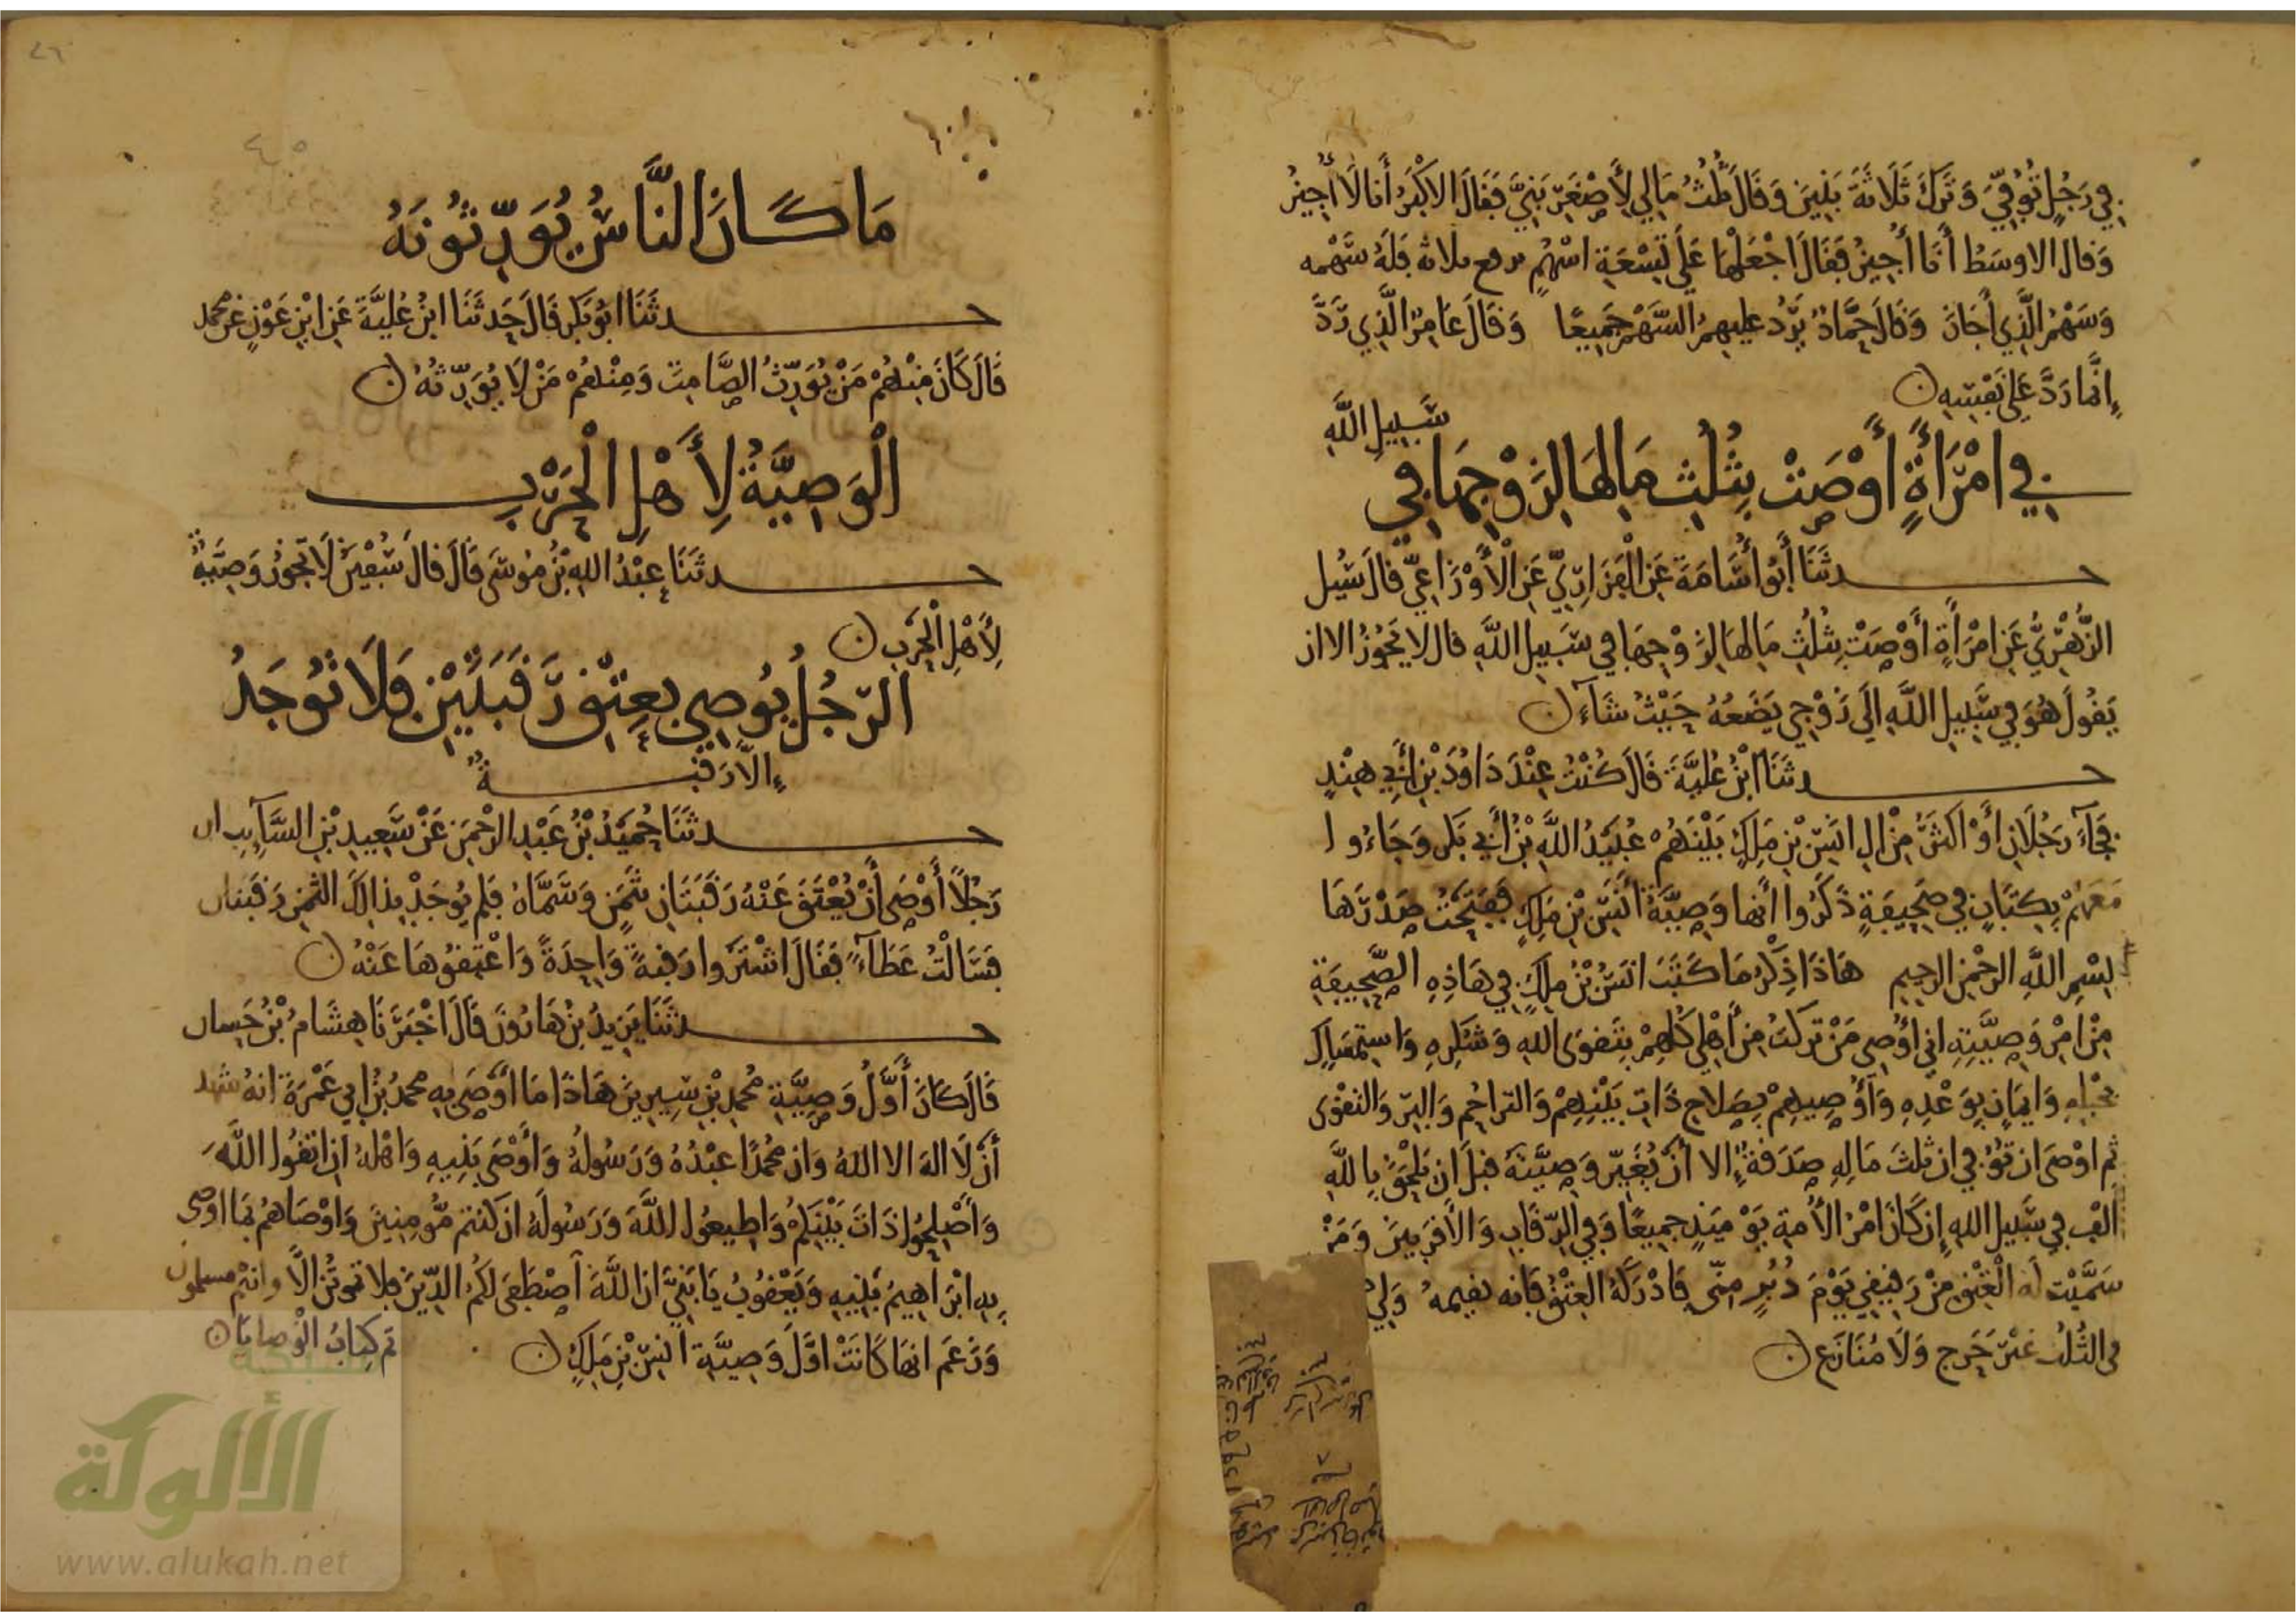 في رَجُلٍ تُوُفِّيَ وَتَرَكَ ثَلَاثَةَ بَنِينَ وَقَالَ ثُلُثُ مَالِي لِأَصْغَرِ بَنِيَّ فَقَالَ الاكْبَرُ أَنَا لَا أُجِيزُ
وَقال الاوسَطُ أَنَا أُجِيزُ فَقَالَ اجْعَلْهَا عَلَى تِسْعَةِ اسْهُمٍ يرفع ثلاثة فَلَهُ سَهْمه
وَسَهْمُ الَّذِي أَجَازَ وَقَالَ حَمَّادٌ يَرُدُّ عليهِمُ السَّهْمَ جَمِيعًا وَقَالَ عَامِرٌ الَّذِي رَدَّ
إِنَّمَا رَدَّ عَلَى نَفْسِهِ ن
في امْرَأَةٍ أَوْصَتْ بِثُلُثِ مَالِهَا لِزَوْجِهَا فِي سَبِيلِ اللَّهِ
حدثَنَا أَبُو أُسَامَةَ عَنِ الْفَزَارِيِّ عَنِ الْأَوْزَاعِيِّ قالَ سُئِل
الزُّهْرِيُّ عَنِ امْرَأَةٍ أَوْصَتْ بِثُلُثِ مَالِهَا لِزَوْجِهَا فِي سَبِيلِ اللَّهِ قال لا يَجُوزُ الا ان
يَقُولَ هُوَ فِي سَبِيلِ اللَّهِ الَى زَوْجِي يَضَعُهُ حَيْثُ شَاءَ ن
حدثَنَا ابْنُ عُلَيَّةَ قَالَ كُنْتُ عِنْدَ دَاوُدَ بْنِ أَبِي هِنْدٍ
فَجَاءَ رَجُلَانِ أَوْ اكثَرُ مِنْ الِ انَسِ بْنِ مَلِكٍ بَيْنَهُمْ عُبَيْدُ اللَّهِ بْنُ أَبِي بَكرٍ وَجَاءُوا
مَعَهُمْ بِكِتَابٍ فِي صَحِيفَةٍ ذَكَرُوا أَنَّهَا وَصِيَّةُ أَنَسِ بْنِ مَلِكٍ فَفَتَحْتُ صَدْرَهَا
بِسْمِ اللَّهِ الرحْمنِ الرحِيمِ هَاذَا ذِكْرُ مَا كَتَبَ انَسُ بْنُ مَلِكٍ فِي هَاذِهِ الصَّحِيفَةِ
مِنْ امْرِ وَصِيَّتِهِ اني أُوصِي مَنْ تَركتُ مِنْ أَهْلِي كُلِّهِمْ بِتَقوَى اللهِ وَشُكرِهِ وَاستِمْسَاكٍ
بِحَبْلِهِ وَايمَانٍ بِوَعْدِهِ وَأُوصِيهِمْ بِصَلَاحِ ذَاتِ بَيْنِهِمْ وَالتراحُمِ وَالبِرِّ وَالتقْوَى
ثم اوْصَى ان تُوُفِّيَ ان ثلثَ مَالِهِ صَدَقَةٌ إِلا أَنْ يُغَيِّرَ وَصِيَّتَهُ قبلَ ان يَلْحَقَ بِاللَّهِ
الْفٌ فِي سَبِيلِ اللهِ إِن كَانَ امْرُ الأُمةِ يَوْمَئِذٍ جَمِيعًا وَفِي الرِّقَابِ وَالأَقرَبِينَ وَمَنْ
سَمَّيْت لَهُ الْعِتْقَ مِنْ رَقِيقِي يَوْمَ دُبُرٍ مِنِّي فَادْرَكَهُ العِتْقُ فَانه يقيمهُ وَلِي
فى الثُلُثِ غَيْرَ حَرَجٍ وَلَا مُنَازَعٍ ن
مَا كَانَ النَّاسُ يُوَرِّثُونَهُ
حدثَنَا ابُو بَكرٍ قَالَ حَدثَنَا ابنُ عُلَيَّةَ عَنِ ابْنِ عَوْنٍ عَن محمد
قَالَ كَانَ مِنْهُمْ مَنْ يُوَرِّثُ الصَّامِتَ وَمِنْهُمْ مَنْ لَا يُوَرِّثُهُ ن
الْوَصِيَّةُ لِأَهْلِ الْحَرْبِ
حدثَنَا عبْدُ اللهِ بْنُ مُوسَى قَالَ قالَ سُفْيَنُ لَا تَجُوزُ وَصِيَّةٌ
لِأَهْلِ الْحَرْبِ ن
الرّجُلُ يُوصِي بِعِتْقِ رَقَبَتَيْنِ فَلَا تُوجَدُ
إِلَّا رَقَبَةٌ
حدثَنَا حُمَيْدُ بْنُ عَبْدِ الرحْمَنِ عَنْ سَعِيدِ بْنِ السَّآئِبِ ان
رَجُلًا أَوْصَى أَنْ يُعْتَقَ عَنْهُ رَقَبَتَانِ بِثَمَنٍ وَسَمَّاهُ فَلم يُوجَدْ بِذالِكَ الثمنِ رَقَبتان
فَسَالْتُ عَطَآءً فَقَالَ اشْتَرُوا رَقبةً وَاحِدَةً وَاعْتِقُوهَا عَنْهُ ن
حدثَنَا يَزِيدُ بْنُ هَارُونَ قَالَ اخْبَرَنَا هِشَامُ بْنُ حَسان
قَالَ كَانَ أَوَّلُ وَصِيَّةِ مُحمدِ بْنِ سِيرِينَ هَاذَا مَا أَوْصَى بِهِ محمدُ بْنُ ابي عَمْرَةَ انهُ شهد
أَنْ لَا اله الا اللهُ وَان مُحَمدًا عبْدُهُ وَرَسُولُهُ وَأَوْصَى بَنِيهِ وَاهْلهُ ان اتَّقُوا اللَّهَ
وَأَصْلِحُوا ذَاتَ بَيْنِكُمْ وَاطِيعُوا اللَّهَ وَرَسُولَهُ ان كنتم مُّومِنِينَ وَاوْصَاهُم بمَا اوصى
بِهِ ابْرَاهِيمُ بَنِيهِ وَيَعْقُوبُ يَا بَنِيَّ ان اللَّهَ اصْطَفَى لَكُمُ الدِّينَ فلا تموتُنَّ الَّا وانتُم مسلمون
وَزَعَم انهَا كَانَتْ اوَّلَ وَصِيَّةِ انَسِ بْنِ مَلِكٍ ن
تم كِتابُ الْوصايَا ن
شبكة
الألوكة
www.alukah.net